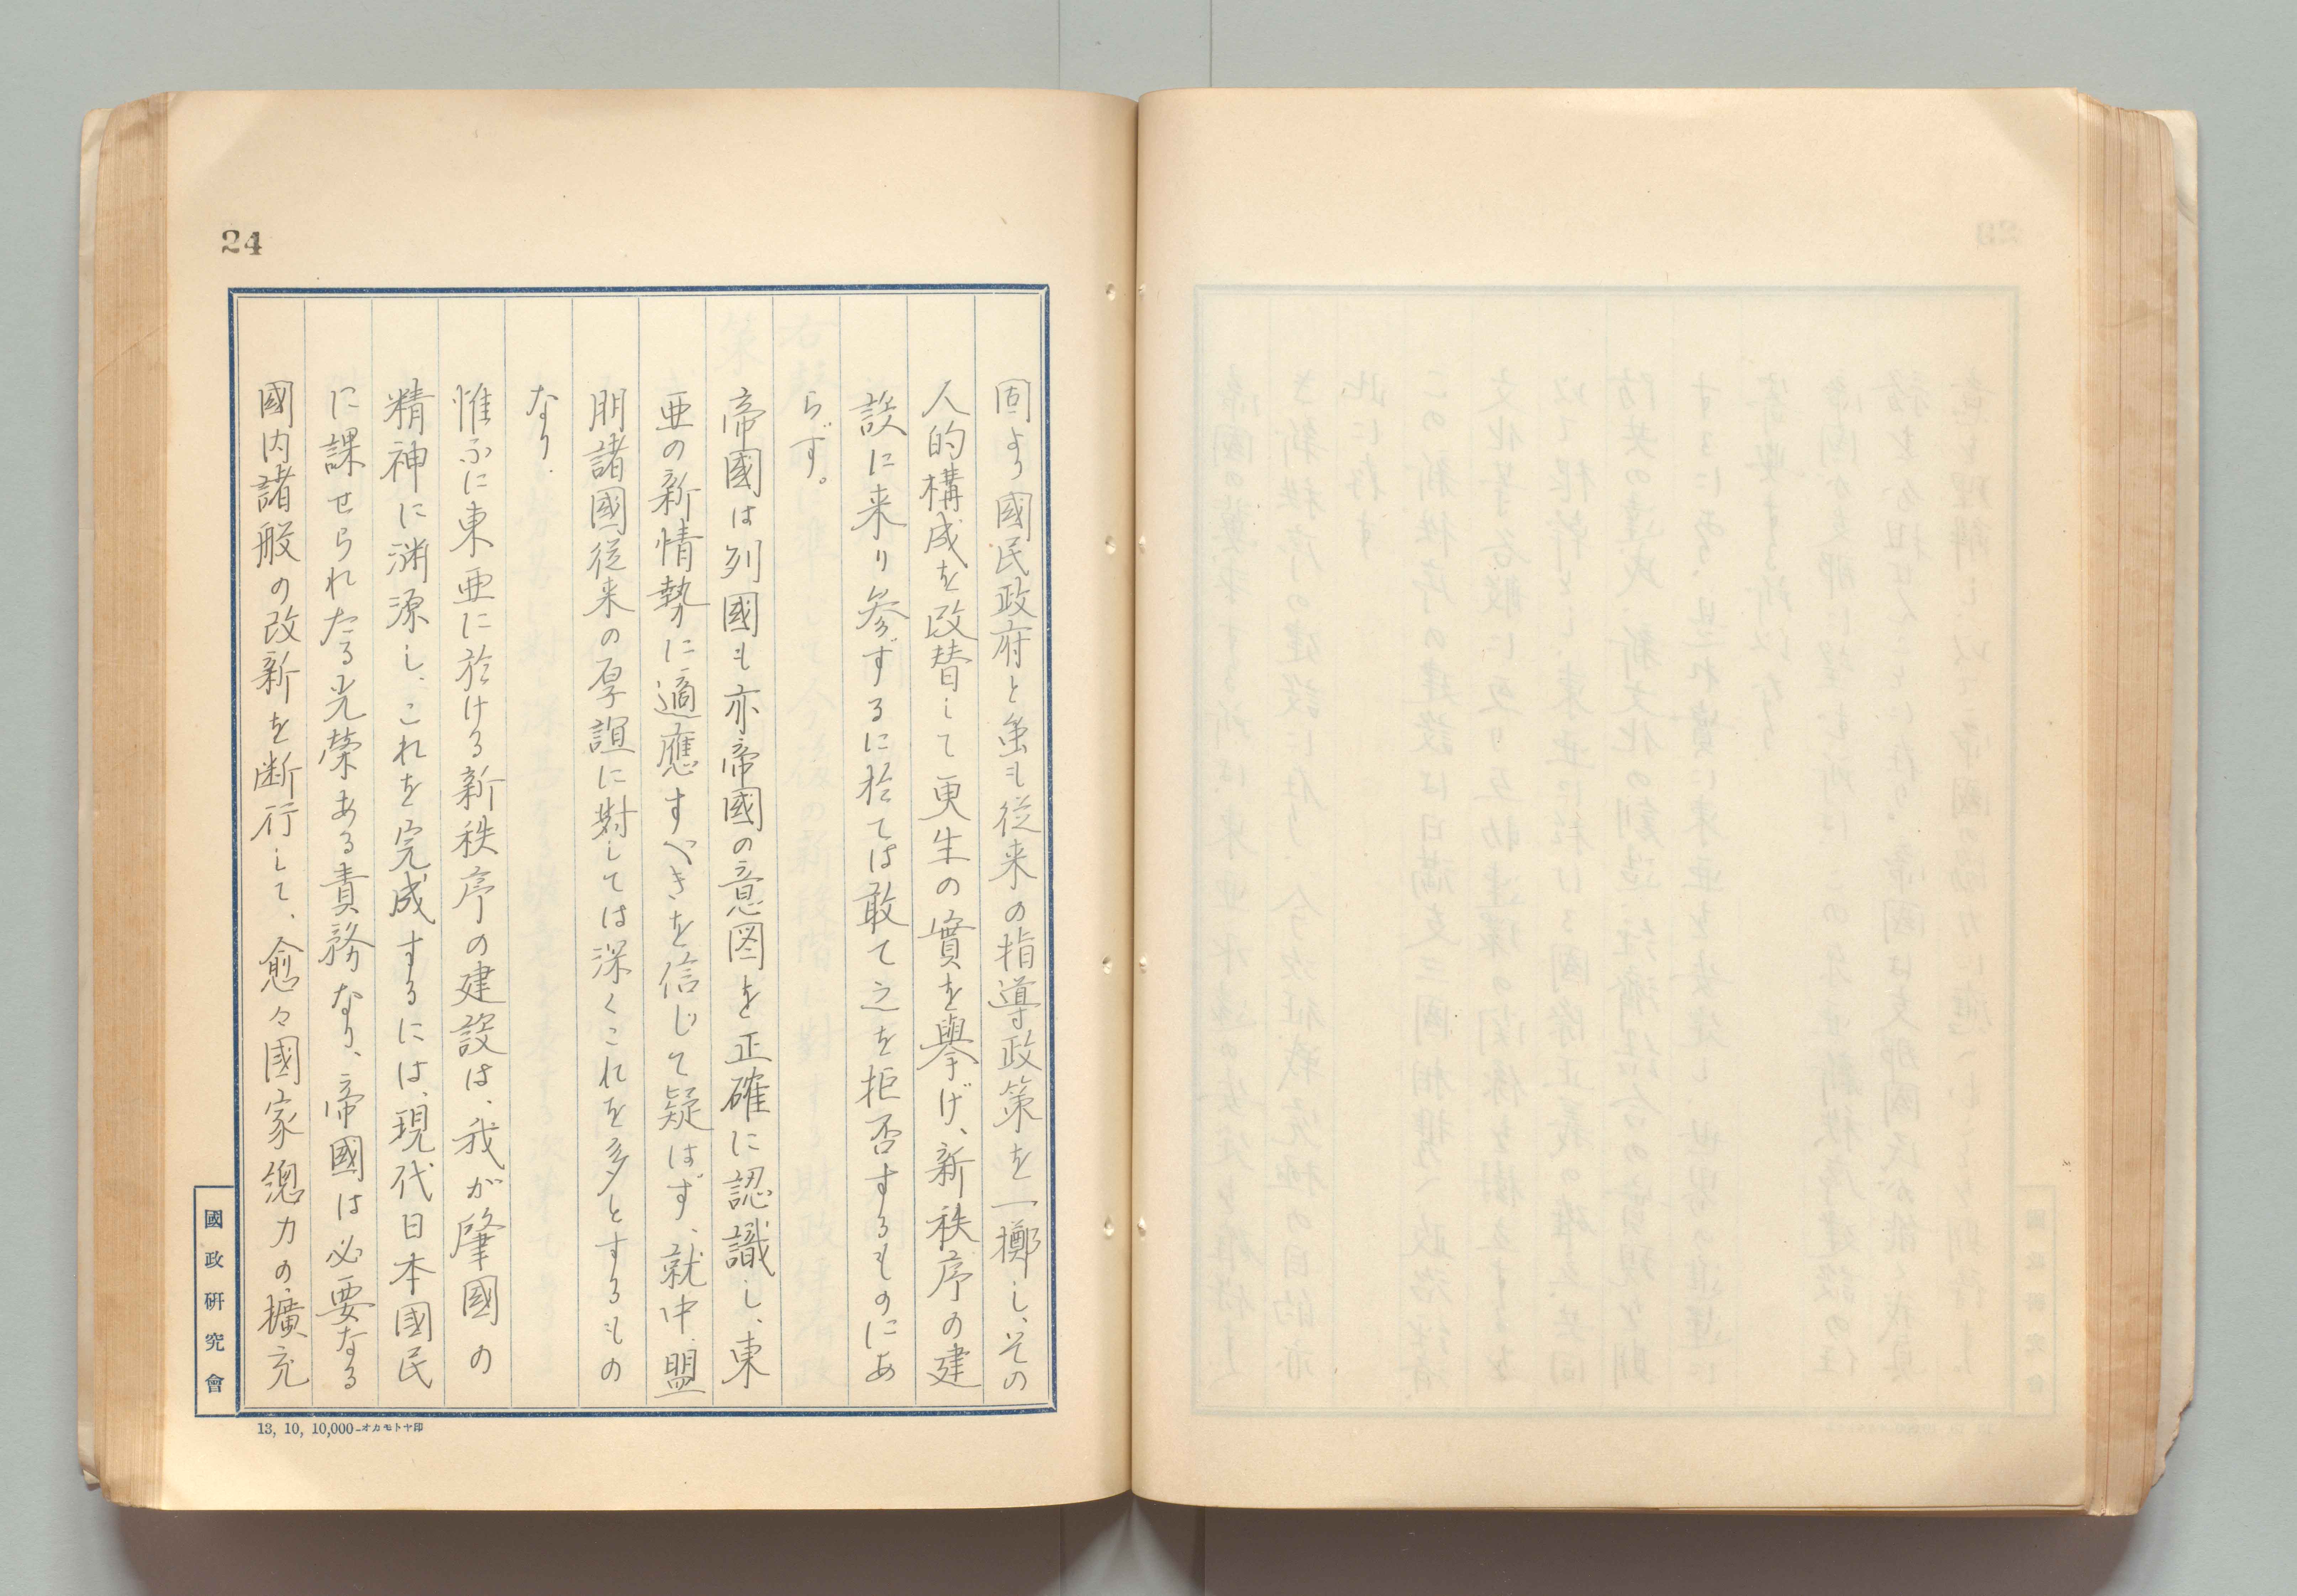 24
固より國民政府と虽も從来の指導政策を一擲し、その
人的構成を改替して更生の實を擧げ、新秩序の建
設に来り参ずるに於ては敢て之を拒否するものにあ
らず。
帝國は列國も亦帝國の意図を正確に認識し、東
亜の新情勢に適應すべきを信じて疑はず、就中、盟
朋諸國從来の厚誼に對しては深くこれを多とするもの
なり.
惟ふに東亜に於ける新秩序の建設は、我が肇國の
精神に淵源し、これを完成するには、現代日本國民
に課せられたる光榮ある責務なり、帝國は必要なる
國内諸般の改新を断行して、愈々國家總力の擴充
國政研究會
13, 10, 10,000-オカモトヤ印